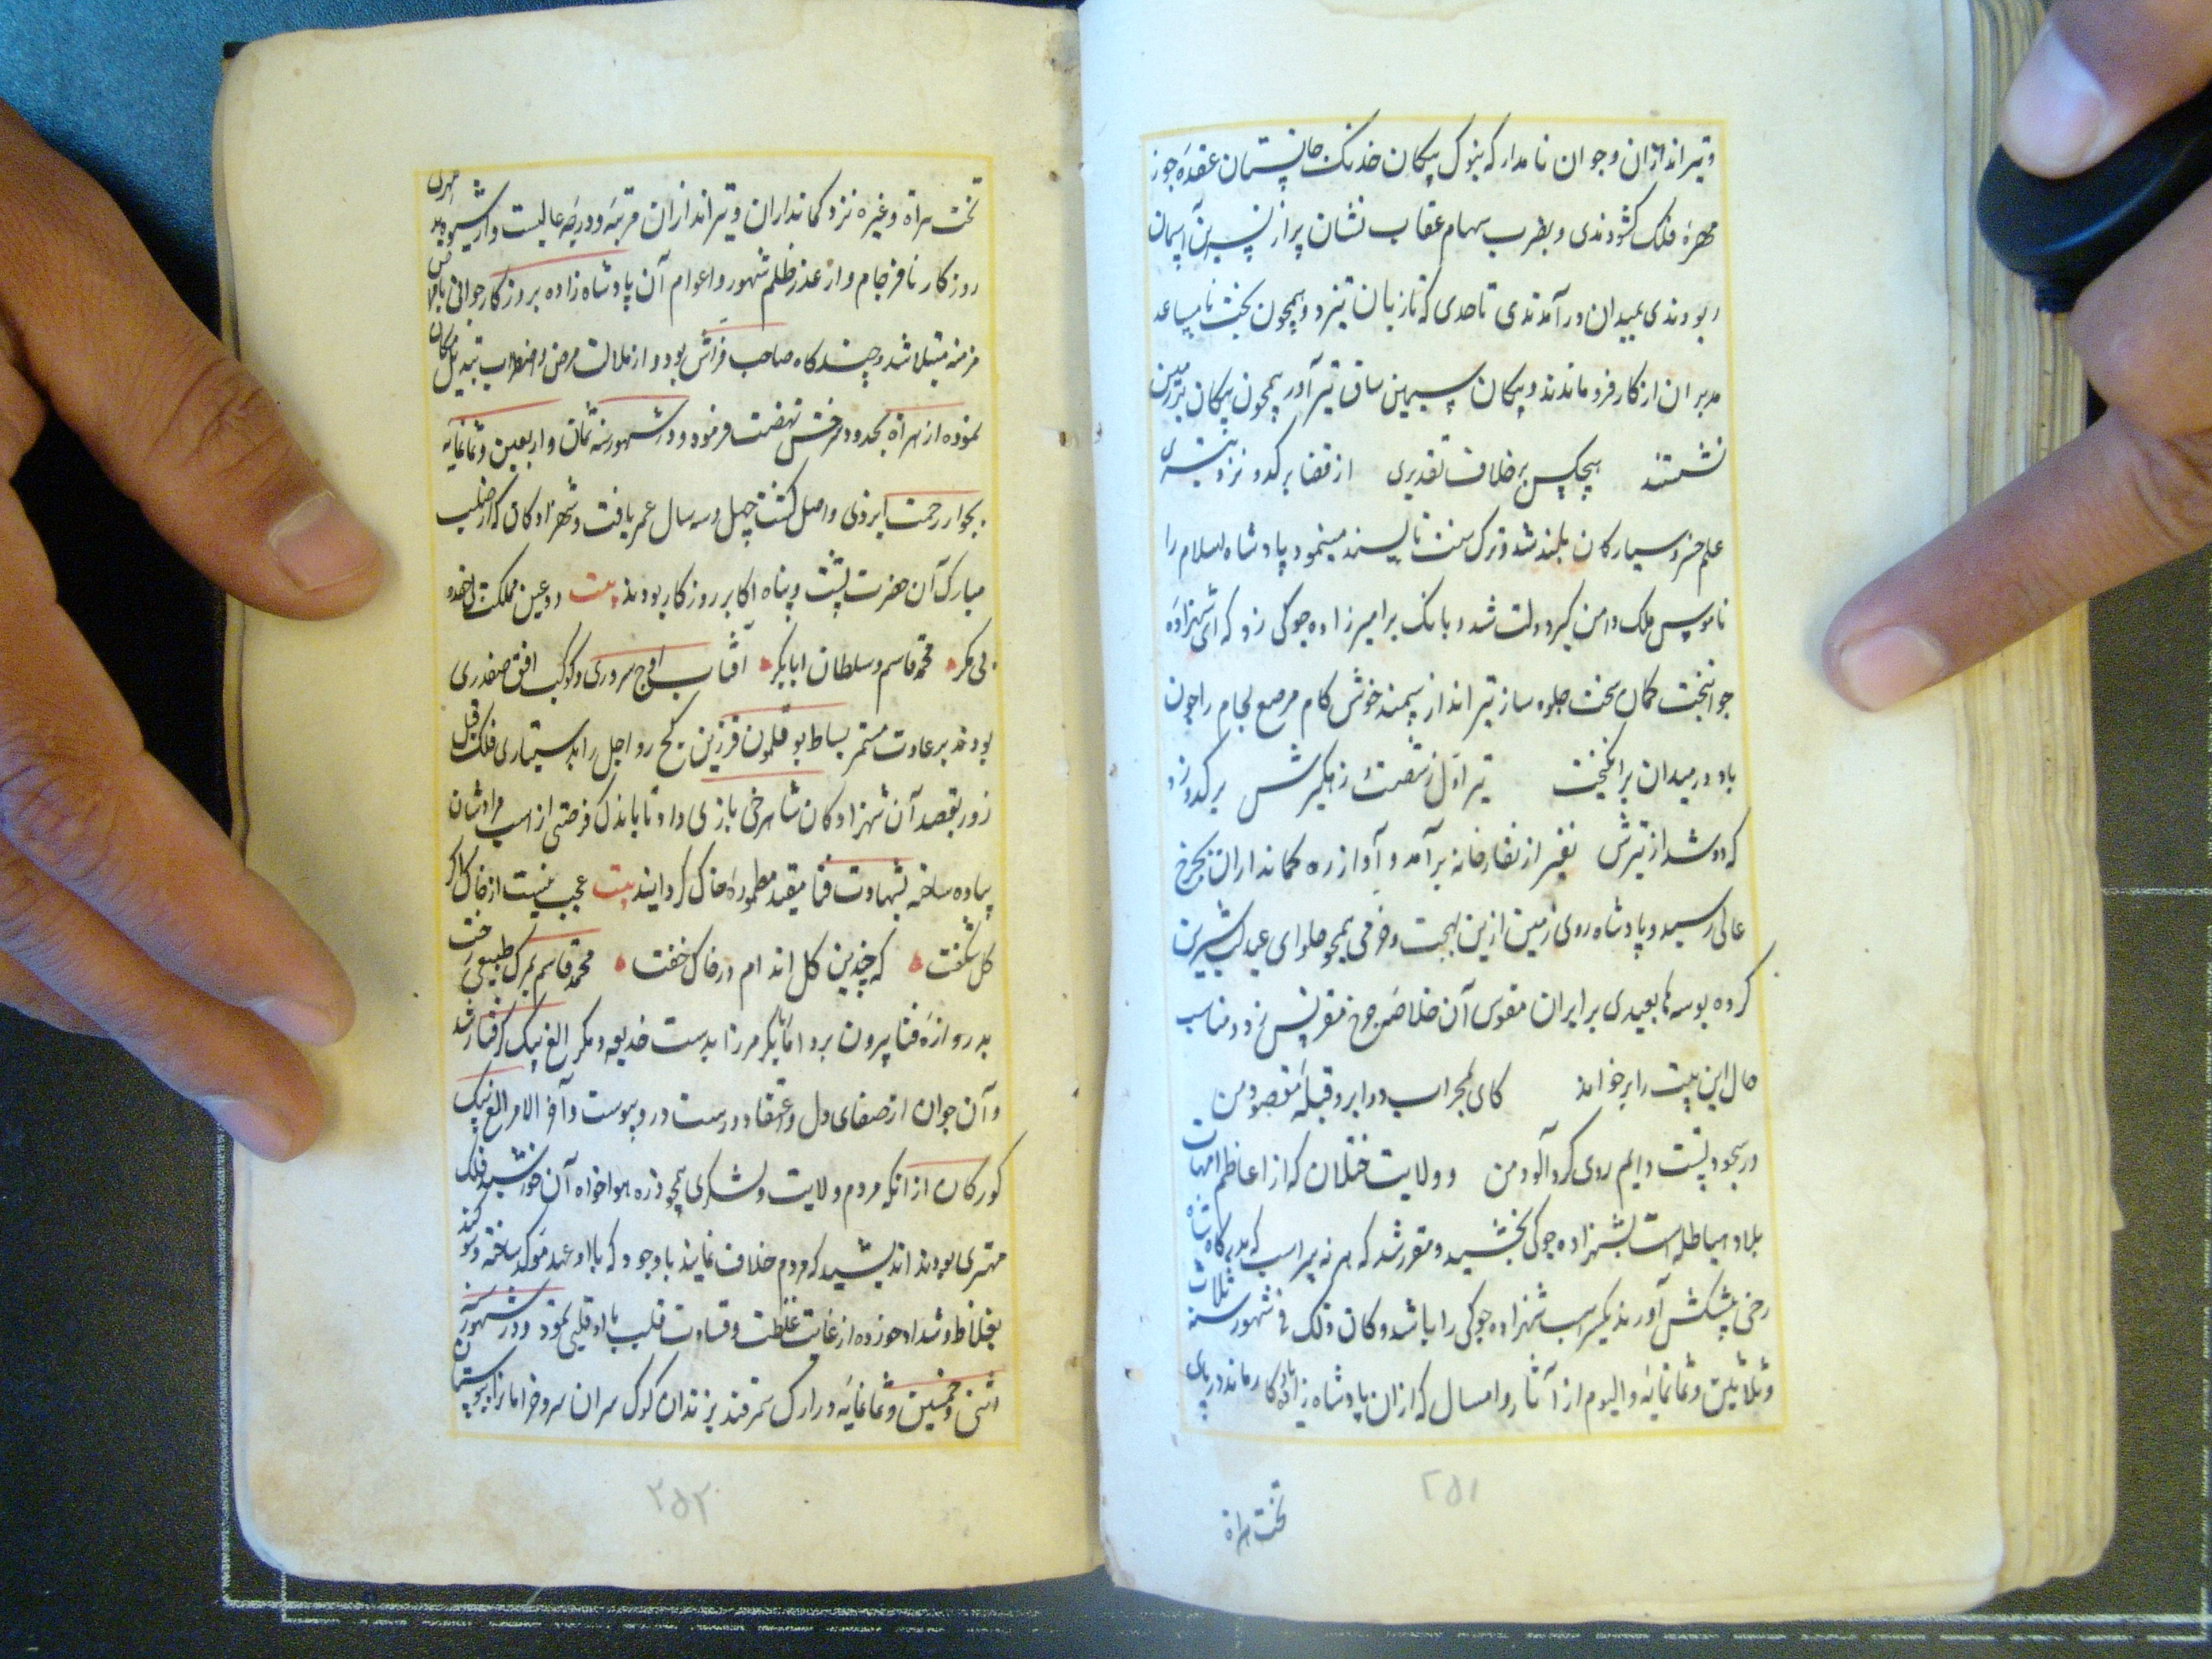 و تیراندازان و جوان نامدار که بنوک پیکان خدنک جانستان عقده جوز
مهره فلک کشودندی و بضرب سهام عقاب نشان پر از نسرین آسمان
ربودندی بمیدان درآمدندی تا حدی که تازیان تیزدو همچون بخت نامساعد
مدبران از کار فرو ماندند و پیکان سیمین ساق تیرآور همچون پیکان بر زمین
نشستند هیچکس بر خلاف تقدیری از قضا بر کدو نزد تیری
علم خسرو سیارکان بلند شد و ترک سنت ناپسند مینمود پادشاه اسلام را
ناموس ملک دامن کیر دولت شد و بانک بر امیرزاده جوکی زد که ای شهزاده
جوانبخت کمان سخت جلوه ساز تیرانداز سمند خوش کام مرصع لجام را چون
باد در میدان برانکیخت تیر اول ز شصت زهکیرش بر کدو زد
که دو شد از تیرش نفیر از نقارخانه برآمد و آوازه زه کمانداران بچرخ
عالی رسید و پادشاه روی زمین ازین بهجت و خرمی همچو حلوای عید لب شیرین
کرده بوسه ها بعیدی بر ابروان مقوس آن خلاصه چرخ مقرنس نزد و مناسب
حال این بیت را برخواند کای بمحراب دو ابرو قبله مقصود من
در سجودت دایم روی کردآلود من و ولایت ختلان که از اعاظم امهات
بلاد هیاطله است بشهزاده جوکی بخشید و مقرر شد که هر نه سر اسب که بدرکاه شاه
رخی پیشکش آورند یکسر اسب شهزاده جوکی را باشد و کان ذلک فی شهور سنه ثلاث
و ثلاثین و ثمانمایه و الیوم از آثار و امسال که از ان پادشاه زاده یادکار ماند در پای
تخت هراة
۲۵۱
تخت هراة و غیره نزد کمانداران و تیراندازان مرتبه و درجه عالیست و از شیوه بدمهری
روزکار نافرجام و از عذر ظلم شهور و اعوام آن پادشاه زاده بروز کار جوانی بامراض
مزمنه مبتلا شد و چندکاه صاحب فراش بود و از ملالت مرض و اضطراب تبدیل مکان
نموده از هراة بحدود سرخس نهضت فرمود و در شهور سنه ثمان و اربعین و ثمانمایه
بجوار رحمت ایزدی واصل کشت چهل و سه سال عمر یافت و شهزادکان که از صلب
مبارک آن حضرت پشت و پناه اکابر روزکار بودند بیت دو عین مملکت بی خدو
بی مکر محمد قاسم و سلطان ابابکر آفتاب اوج سروری و کوکب افق صفدری
بودند بر عادت مستمر بساط بوقلمون فرزین کج رو اجل را بدستیاری فلک قیل
زور بقصد آن شهزادکان شاهرخی بازی داد تا باندک فرصتی از اسب مرادشان
پیاده ساخته بشهادت فنا مقید مطموره خاک کردانید بیت عجب نیست از خاک اکر
کل شکفت که چندین کل اندام در خاک خفت محمد قاسم بمرک طبیعی رخت
بدروازه فنا بیرون برد ابابکر مرزا بدست خدیعه و مکر الغ بیک کرفتار شد
و آن جوان از صفای دل و اعتقاد درست درو پیوست و آخر الامر الغ بیک
کورکان از انکه مردم ولایت و لشکری همچو ذره هواخواه آن خورشید فلک
مهتری بودند اندیشید که مردم خلاف نمایند با وجود که با او عهد موکد ساخته و سوکند
بغلاظ و شداد خورده از غایت غلظت و قساوت قلب با او قلبی نمود و در شهور سنه
اثنی و خمسین و ثمانمایه در ارک سمرقند بزندان کوک سران سرو خرامان را ببوستان
۲۵۲